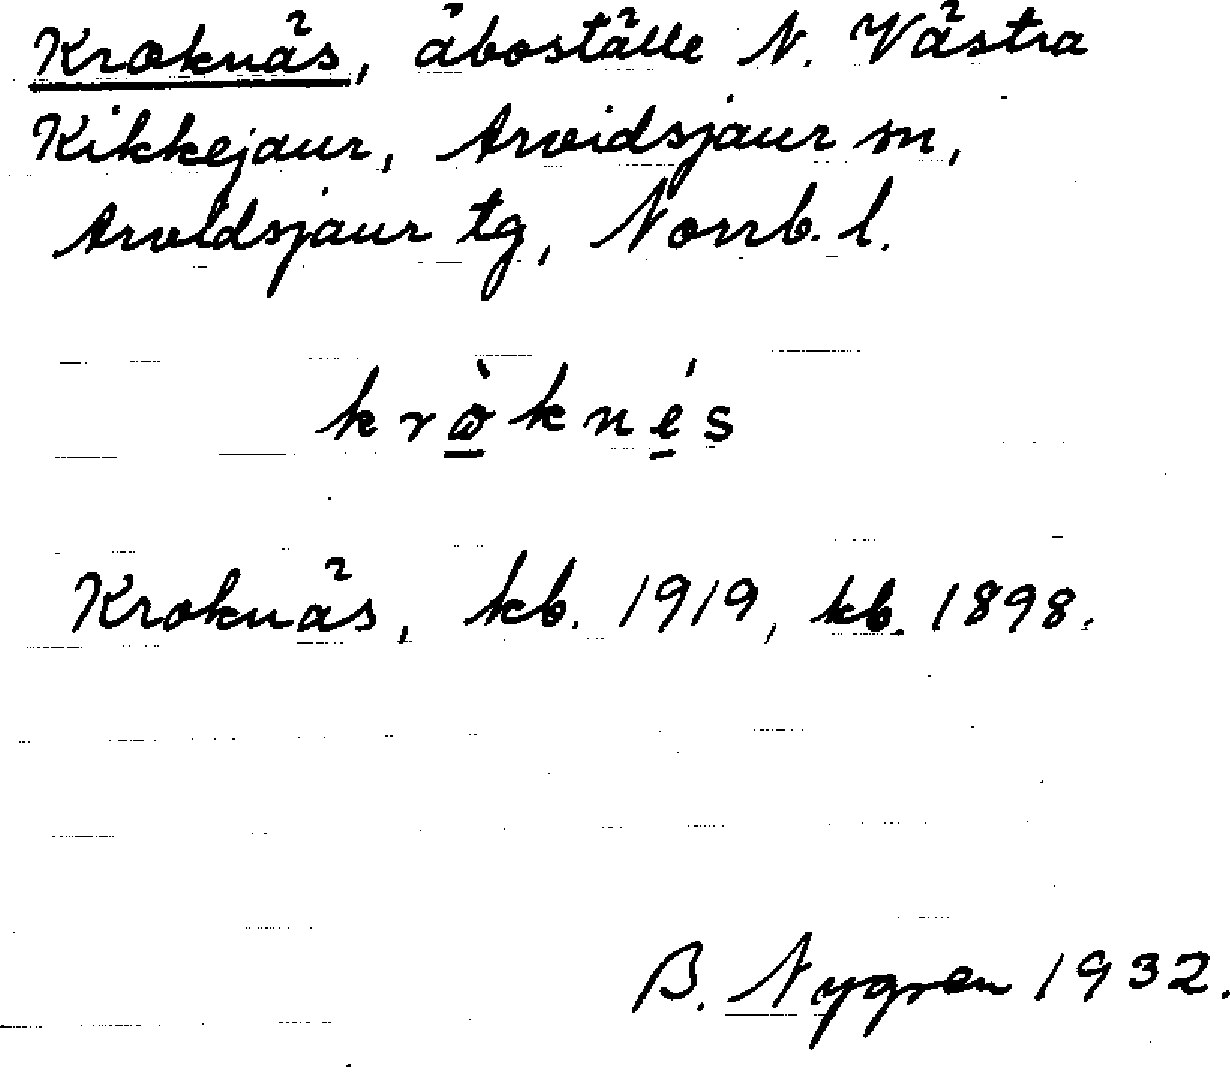 Kroknäs, åboställe N. Västra
Kikkejaur, Arvidsjaur sn,
Arvidsjaur tg, Norrb. l.
krò̱kné̱s
Kroknäs, kb. 1919, kb. 1898.
B. Nygren 1932.